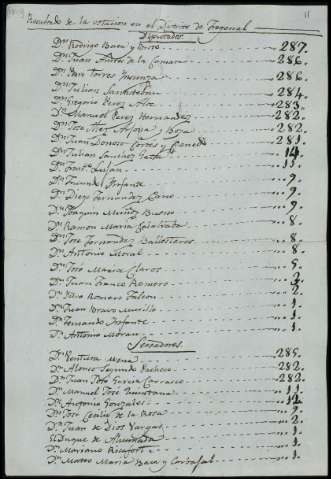 Resultado de la votacion en el Distrito de Fregenal
Diputados
Dn Rodrigo Baca y 287.
Dn Juan de la Camara 286.
Dn Torres 286.
Dn Julian Santisteban 284.
Dn Gregorio Perez Aloe 283.
Dn Manuel Perez Hernandez 282.
Dn Jose Arjona y Boza 282.
Dn Juan Donoso Cortes y Canedo 281.
Dn Julian Sanchez 14.
Dn Lujan 11.
Dn Facundo Infante 9.
Dn Diego Fernandez Cano 9.
Dn Joaquin Muñoz Bueno 9.
Dn Ramon Maria Calatrava 8.
Dn Jose Fernandez Ballesteros 8.
Dn Antonio Moral 8.
Dn Jose Maria Claros 5.
Dn Juan Franco Romero
Dn Romero Falcon 2.
Dn Juan Bravo Murillo 1.
Dn Fernando Infante 1.
Dn Antonio Moran 1.
Senadores
Dn Ventura Mena 285.
Dn Alonso Segundo Pacheco 282.
Dn Juan Jose Garcia Carrasco 282.
Dn Manuel Jose Quintana 11.
Dn Antonio Gonzalez 12.
Dn Jose Cecilio de la Rosa 9.
Dn Juan de Dios Vargas 2.
El Duque de Ahumada 1.
Dn Mariano Ricafort 1.
Dn Mateo Maria Baca y Carbajal 1.